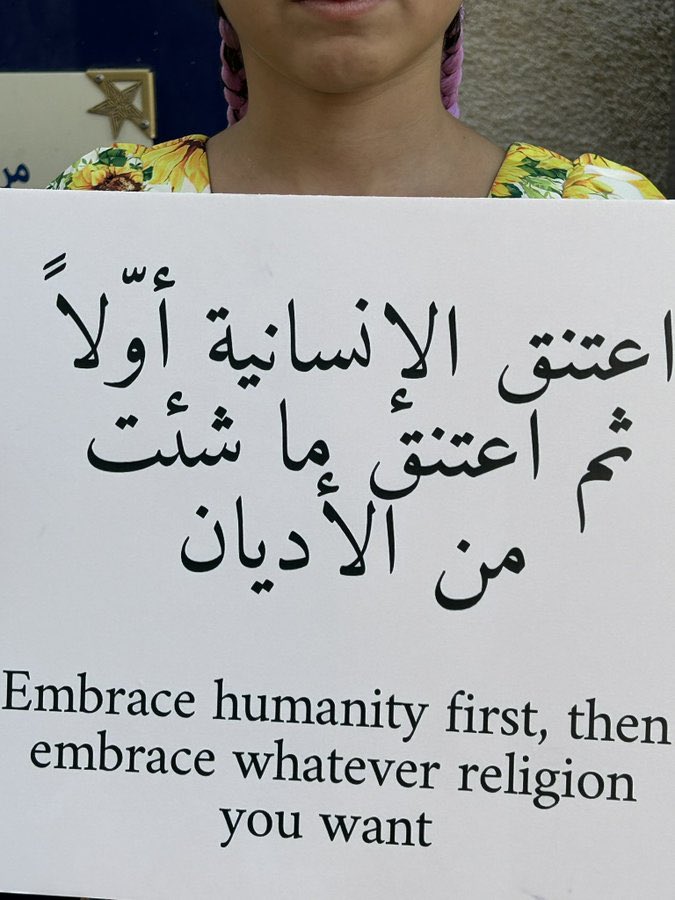 اعتنق الإنسانية أوّلاً
ثم اعتنق ما شئت
من الأديان
Embrace humanity first, then
embrace whatever religion
you want